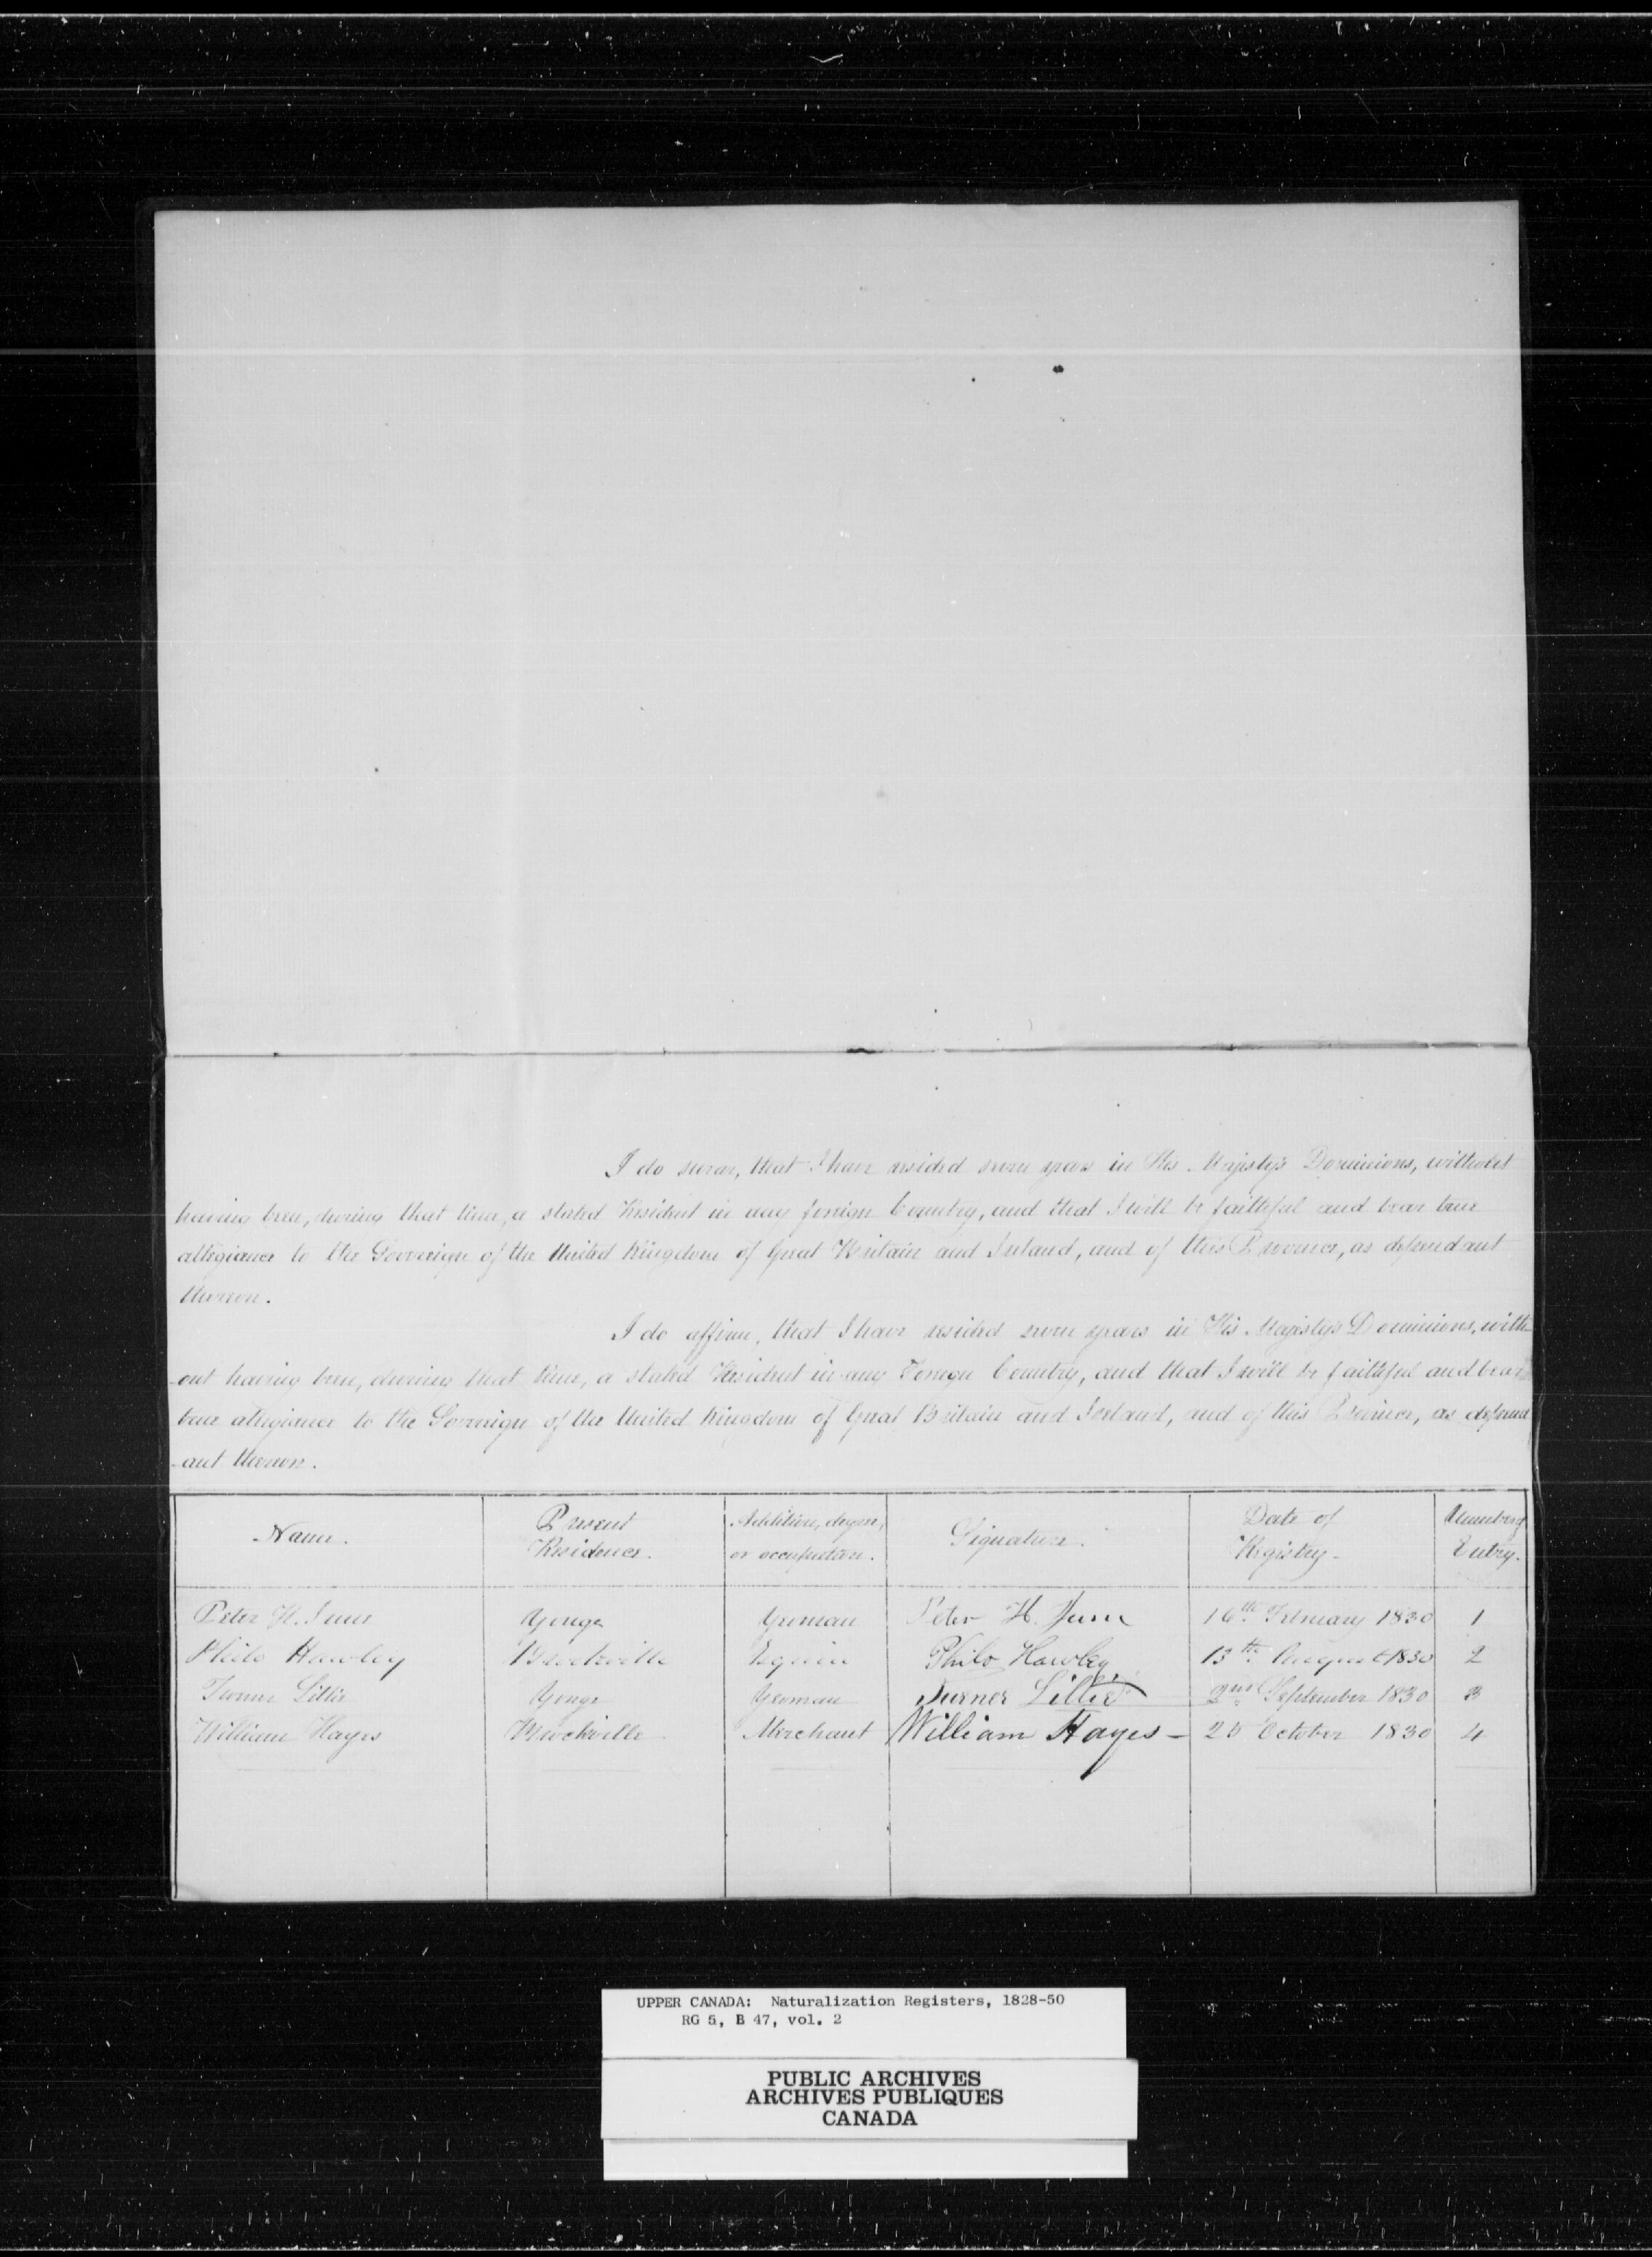 I do swear, that I have resided seven years in His Majesty's Dominions, without
having been, during that time, a stated Resident in any foreign Country, and that I will be faithful and bear true
allegiance to the Sovereign of the United Kingdom of Great Britain and Ireland, and of this Province, as dependant
thereon.
I do affirm, that I have resided seven years in His Majesty's Dominions, with-
-out having been, during that time, a stated Resident in any Foreign Country, and that I will be faithful and bear
true allegiance to the Sovereign of the United Kingdom of Great Britain and Ireland, and of this Province, as depend
-ant thereon.
Name. Present Residence. Addition, degree, or occupation. Signature. Date of Registry. Number of Entry.
Peter H. Yonge Yeoman Peter H. 16th February 1830 1
Philo Hawley Brockville Esquire Philo Hawley 13th August 1830 2
Turner Lillie Yonge Yeoman Turner Lillie 2nd September 1830 3
William Hayes Brockville Merchant William Hayes - October 1830 4
UPPER CANADA: Naturalization Registers, 1828-50
RG 5, B 47, vol. 2
PUBLIC ARCHIVES
ARCHIVES PUBLIQUES
CANADA